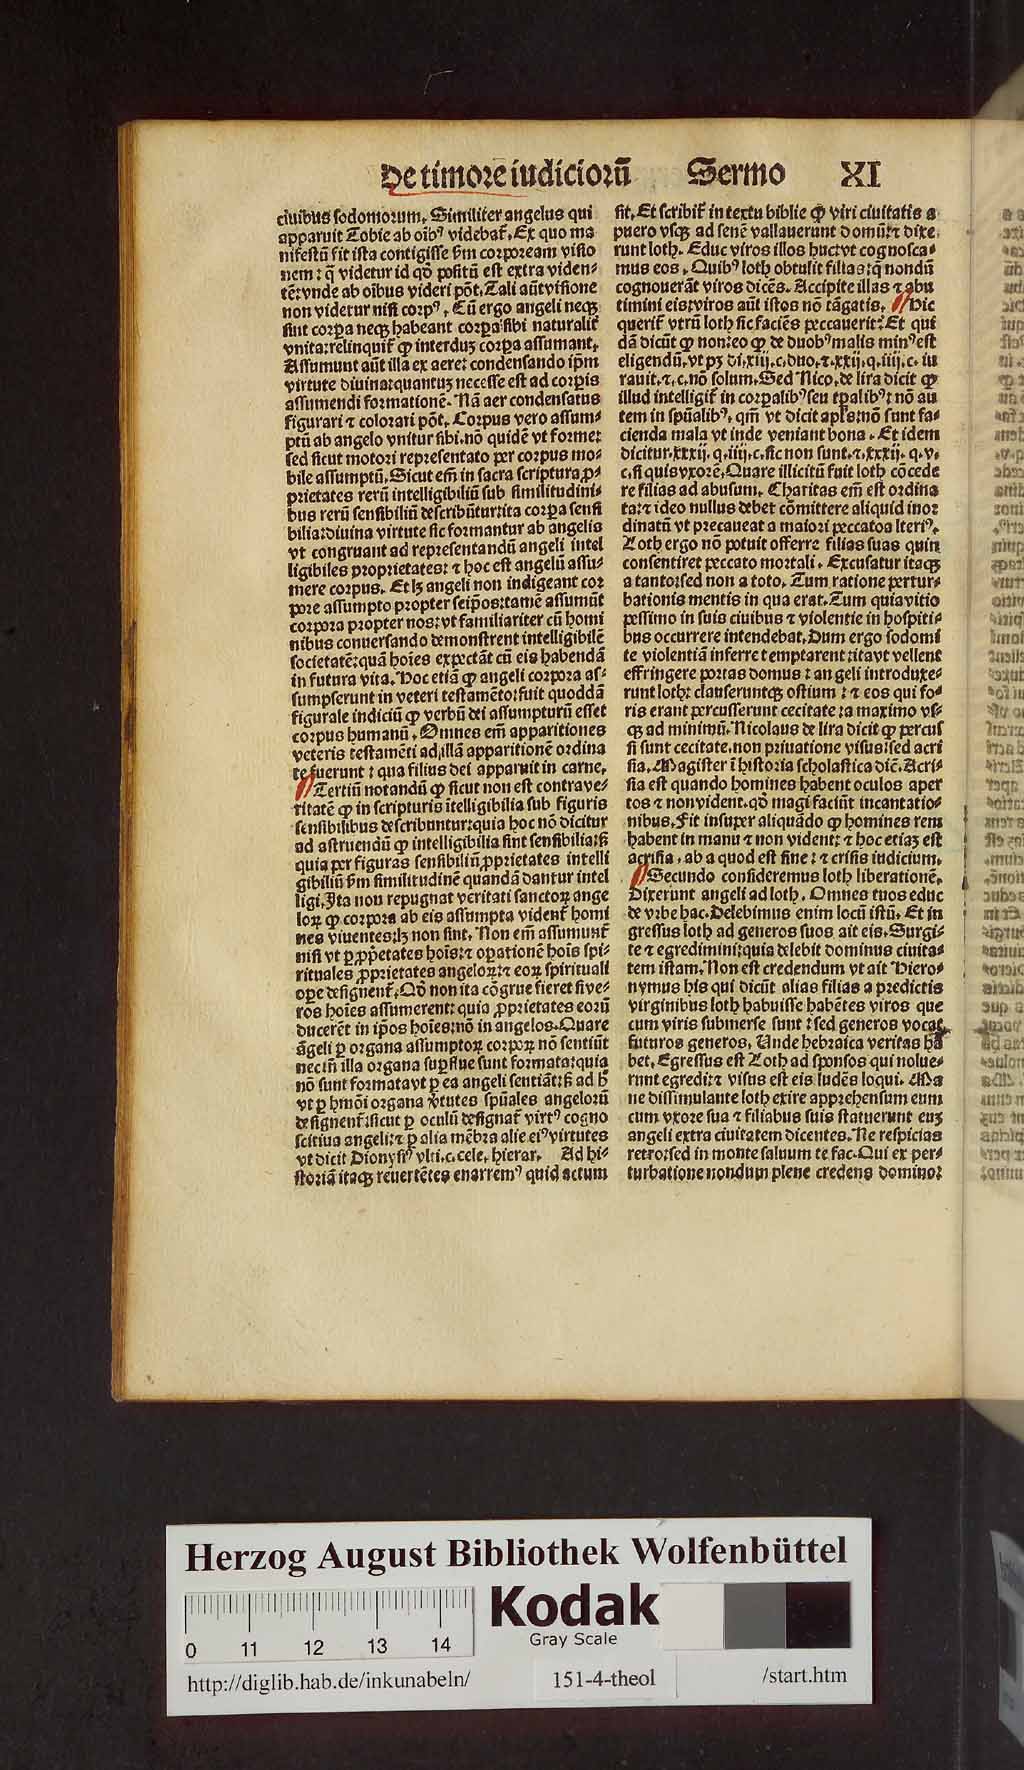 De timore iudiciorū Sermo XI
ciuibus sodomorum. Similiter angelus qui
apparuit Tobie ab oībꝰ videbat̄. Ex quo ma
nifestū fit ista contigisse ẜm corpoream visio
nem: q̄ videtur id qđ positū est extra viden⸗
tē: vnde ab oībus videri pōt. Tali aūt visione
non videtur nisi corpꝰ. Cū ergo angeli neqꝫ
sint corpa neqꝫ habeant corpa sibi naturalit̄
vnita: relinquit̄ ꝙ interduꝫ corpa assumant.
Assumunt aūt illa ex aere: condensando ip̄m
virtute diuina: quantuꝫ necesse est ad corpis
assumendi formationē. Nā aer condensatus
figurari ⁊ colorari pōt. Corpus vero assum⸗
ptū ab angelo vnitur sibi. nō quidē vt forme:
sed sicut motori representato per corpus mo⸗
bile assumptū. Sicut em̄ in sacra scriptura ꝓ⸗
prietates rerū intelligibiliū sub similitudini⸗
bus rerū sensibiliū describūtur: ita corpa sensi
bilia: diuina virtute sic formantur ab angelis
vt congruant ad representandū angeli intel
ligibiles proprietates: ⁊ hoc est angelū assu⸗
mere corpus. Et lꝫ angeli non indigeant cor
pore assumpto propter seip̄os: tamē assumūt
corpora propter nos: vt familiariter cū homi
nibus conuersando demonstrent intelligibilē
societatē: quā hoīes expectāt cū eis habendā
in futura vita. Hoc etiā ꝙ angeli corpora as⸗
sumpserunt in veteri testamēto: fuit quoddā
figurale indiciū ꝙ verbū dei assumpturū esset
corpus humanū. Omnes em̄ apparitiones
veteris testamēti ad illā apparitionē ordina
te fuerunt: qua filius dei apparuit in carne.
Tertiū notandū ꝙ sicut non est contra ve⸗
ritatē ꝙ in scripturis ītelligibilia sub figuris
sensibilibus describuntur: quia hoc nō dicitur
ad astruendū ꝙ intelligibilia sint sensibilia: ß
quia per figuras sensibiliū ꝓprietates intelli
gibiliū ẜm similitudinē quandā dantur intel
ligi. Ita non repugnat veritati sanctoꝝ ange
loꝝ ꝙ corpora ab eis assumpta vident̄ homi
nes viuentes: lꝫ non sint. Non em̄ assumunt̄
nisi vt ꝑ ꝓp̄etates hoīs: ⁊ opationē hoīs spi⸗
rituales ꝓprietates angeloꝝ: ⁊ eoꝝ spirituali
ope designent̄. Qđ non ita cōgrue fieret si ve⸗
ros hoīes assumerent: quia ꝓprietates eorū
ducerēt in ip̄os hoīes: nō in angelos. Quare
āgeli ꝑ organa assumptoꝝ corpoꝝ nō sentiūt
nec in illa organa supflue sunt formata: quia
nō sunt formata vt ꝑ ea angeli sentiāt: ß ad h̄
vt ꝑ hmōi organa ỽtutes spūales angelorū
designent̄: sicut ꝑ oculū designat̄ virtꝰ cogno
scitiua angeli: ⁊ ꝑ alia mēbra alie eiꝰ virtutes
vt dicit Dionysiꝰ vlti. c. cele. hierar. Ad hi⸗
storiā itaqꝫ reuertētes enarremꝰ quid actum
sit. Et scribit̄ in textu biblie ꝙ viri ciuitatis a
puero vsqꝫ ad senē vallauerunt domū: ⁊ dixe
runt loth. Educ viros illos huc: vt cognosca⸗
mus eos. Quibꝰ loth obtulit filias: q̄ nondū
cognouerāt viros dicēs. Accipite illas ⁊ abu
timini eis: viros aūt istos nō tāgatis. Hic
querit̄ vtrū loth sic faciēs peccauerit: Et qui
dā dicūt ꝙ non: eo ꝙ de duobꝰ malis minꝰ est
eligendū. vt pꝫ di. xiij. c. duo. ⁊. xxij. q. iiij. c. iu
rauit. ⁊. c. nō solum. Sed Nico. de lira dicit ꝙ
illud intelligit̄ in corpalibꝰ seu tp̄alibꝰ: nō au
tem in spūalibꝰ. qm̄ vt dicit apl̄s: nō sunt fa⸗
cienda mala vt inde veniant bona. Et idem
dicitur. xxxij. q. iiij. c. sic non sunt. ⁊. xxxij. q. v.
c. si quis vxorē. Quare illicitū fuit loth cōcede
re filias ad abusum. Charitas em̄ est ordina
ta: ⁊ ideo nullus debet cōmittere aliquid inor
dinatū vt precaueat a maiori peccato alteriꝰ.
Loth ergo nō potuit offerre filias suas quin
consentiret peccato mortali. Excusatur itaqꝫ
a tanto: sed non a toto. Tum ratione pertur⸗
bationis mentis in qua erat. Tum quia vitio
pessimo in suis ciuibus ⁊ violentie in hospiti⸗
bus occurrere intendebat. Dum ergo sodomi
te violentiā inferre temptarent: ita vt vellent
effringere portas domus: angeli introduxe⸗
runt loth: clauseruntqꝫ ostium: ⁊ eos qui fo⸗
ris erant percusserunt cecitate: a maximo vs⸗
qꝫ ad minimū. Nicolaus de lira dicit ꝙ percus
si sunt cecitate. non priuatione visus: sed acri
sia. Magister ī historia scholastica diē. Acri⸗
sia est quando homines habent oculos aper
tos ⁊ non vident. qđ magi faciūt incantatio⸗
nibus. Fit insuper aliquādo ꝙ homines rem
habent in manu ⁊ non vident: ⁊ hoc etiaꝫ est
acrisia. ab a quod est sine: ⁊ crisis iudicium.
Secundo consideremus loth liberationē.
Dixerunt angeli ad loth. Omnes tuos educ
de vrbe hac. Delebimus enim locū istū. Et in
gressus loth ad generos suos ait eis. Surgi⸗
te ⁊ egredimini: quia delebit dominus ciuita⸗
tem istam. Non est credendum vt ait Hiero⸗
nymus his qui dicūt alias filias a predictis
virginibus loth habuisse habētes viros que
cum viris submerse sunt: sed generos vocat
futuros generos. Unde hebraica veritas ha
bet. Egressus est Loth ad sponsos qui nolue⸗
runt egredi: ⁊ visus est eis ludēs loqui. Ma
ne dissimulante loth exire apprehensum eum
cum vxore sua ⁊ filiabus suis statuerunt euꝫ
angeli extra ciuitatem dicentes. Ne respicias
retro: sed in monte saluum te fac. Qui ex per⸗
turbatione nondum plene credens domino:
Herzog August Bibliothek Wolfenbüttel
Kodak
Gray Scale
0 11 12 13 14
http://diglib.hab.de/inkunabeln/ 151-4-theol /start.htm